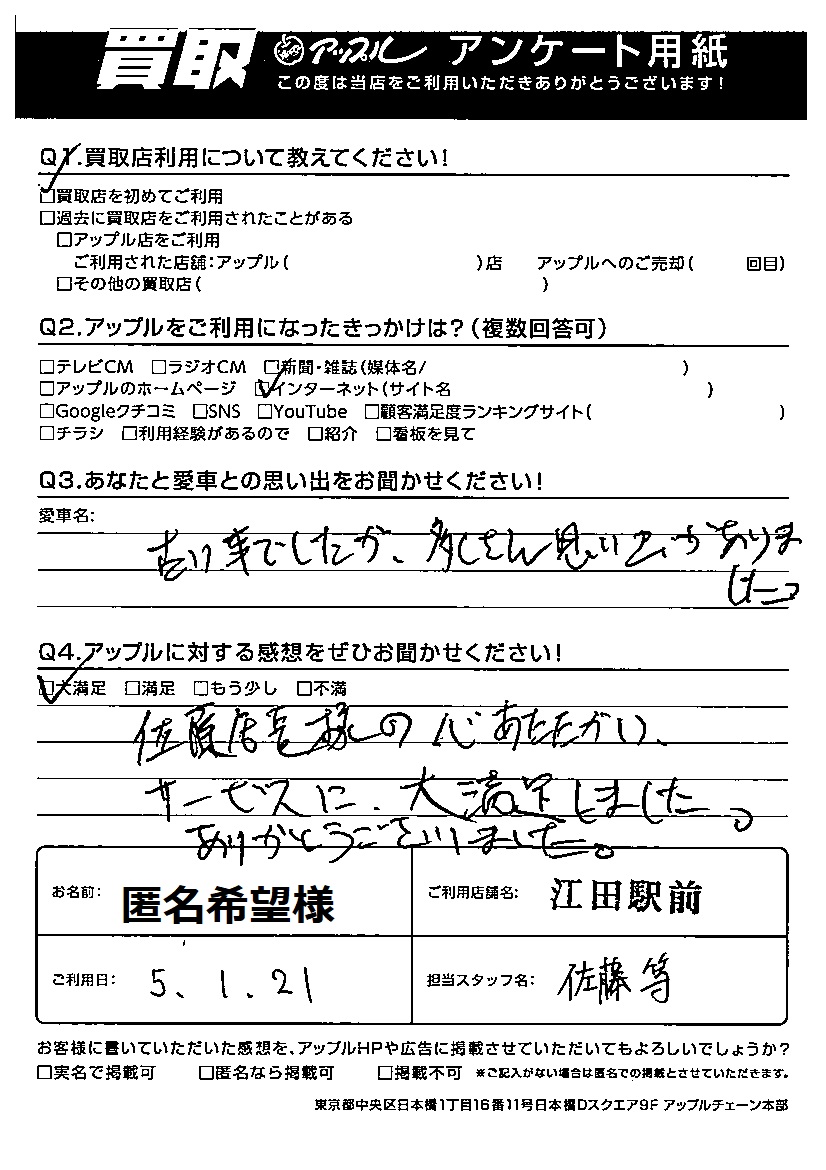 買取 アップル アンケート用紙
この度は当店をご利用いただきありがとうございます!
Q1.買取店利用について教えてください!
□買取店を初めてご利用
□過去に買取店をご利用されたことがある
□アップル店をご利用
ご利用された店舗:アップル( )店 アップルへのご売却( 回目)
□その他の買取店( )
Q2.アップルをご利用になったきっかけは?(複数回答可)
□テレビCM □ラジオCM □新聞・雑誌(媒体名/ )
□アップルのホームページ □インターネット(サイト名 )
□Googleクチコミ □SNS □YouTube □顧客満足度ランキングサイト( )
□チラシ □利用経験があるので □紹介 □看板を見て
Q3.あなたと愛車との思い出をお聞かせください!
愛車名:
古い車でしたが、多くさん思い出がありま
した
Q4.アップルに対する感想をぜひお聞かせください!
□大満足 □満足 □もう少し □不満
佐藤店長様の心あたたかい、
サービスに、大満足しました。
ありがとうございました。
お名前: 匿名希望様 ご利用店舗名: 江田駅前
ご利用日: 5.1.21 担当スタッフ名: 佐藤等
お客様に書いていただいた感想を、アップルHPや広告に掲載させていただいてもよろしいでしょうか?
□実名で掲載可 □匿名なら掲載可 □掲載不可 ※ご記入がない場合は匿名での掲載とさせていただきます。
東京都中央区日本橋1丁目16番11号日本橋Dスクエア9F アップルチェーン本部